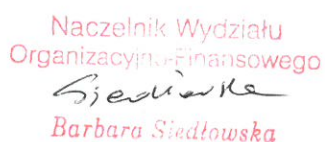 Naczelnik Wydziału
Organizacyjno-Finansowego
Siedlowska
Barbara Siedłowska